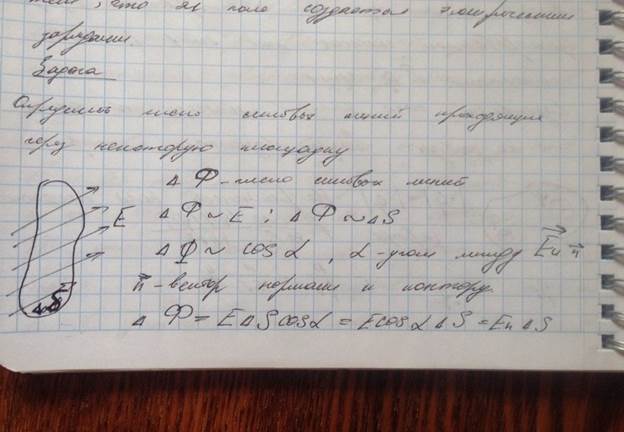 что эл поле создаётся электрическими
зарядами.
Задача
Определить число силовых линий проходящих
через некоторую площадку
Δ Φ - число силовых линий
E Δ Φ ~ E ; Δ Φ ~ Δ S
Δ Φ ~ cos α , α - угол между E⃗ и n⃗
n⃗ - вектор нормали к контуру.
ΔS
Δ Φ = E Δ S cos α = E cos α Δ S = Eₙ Δ S